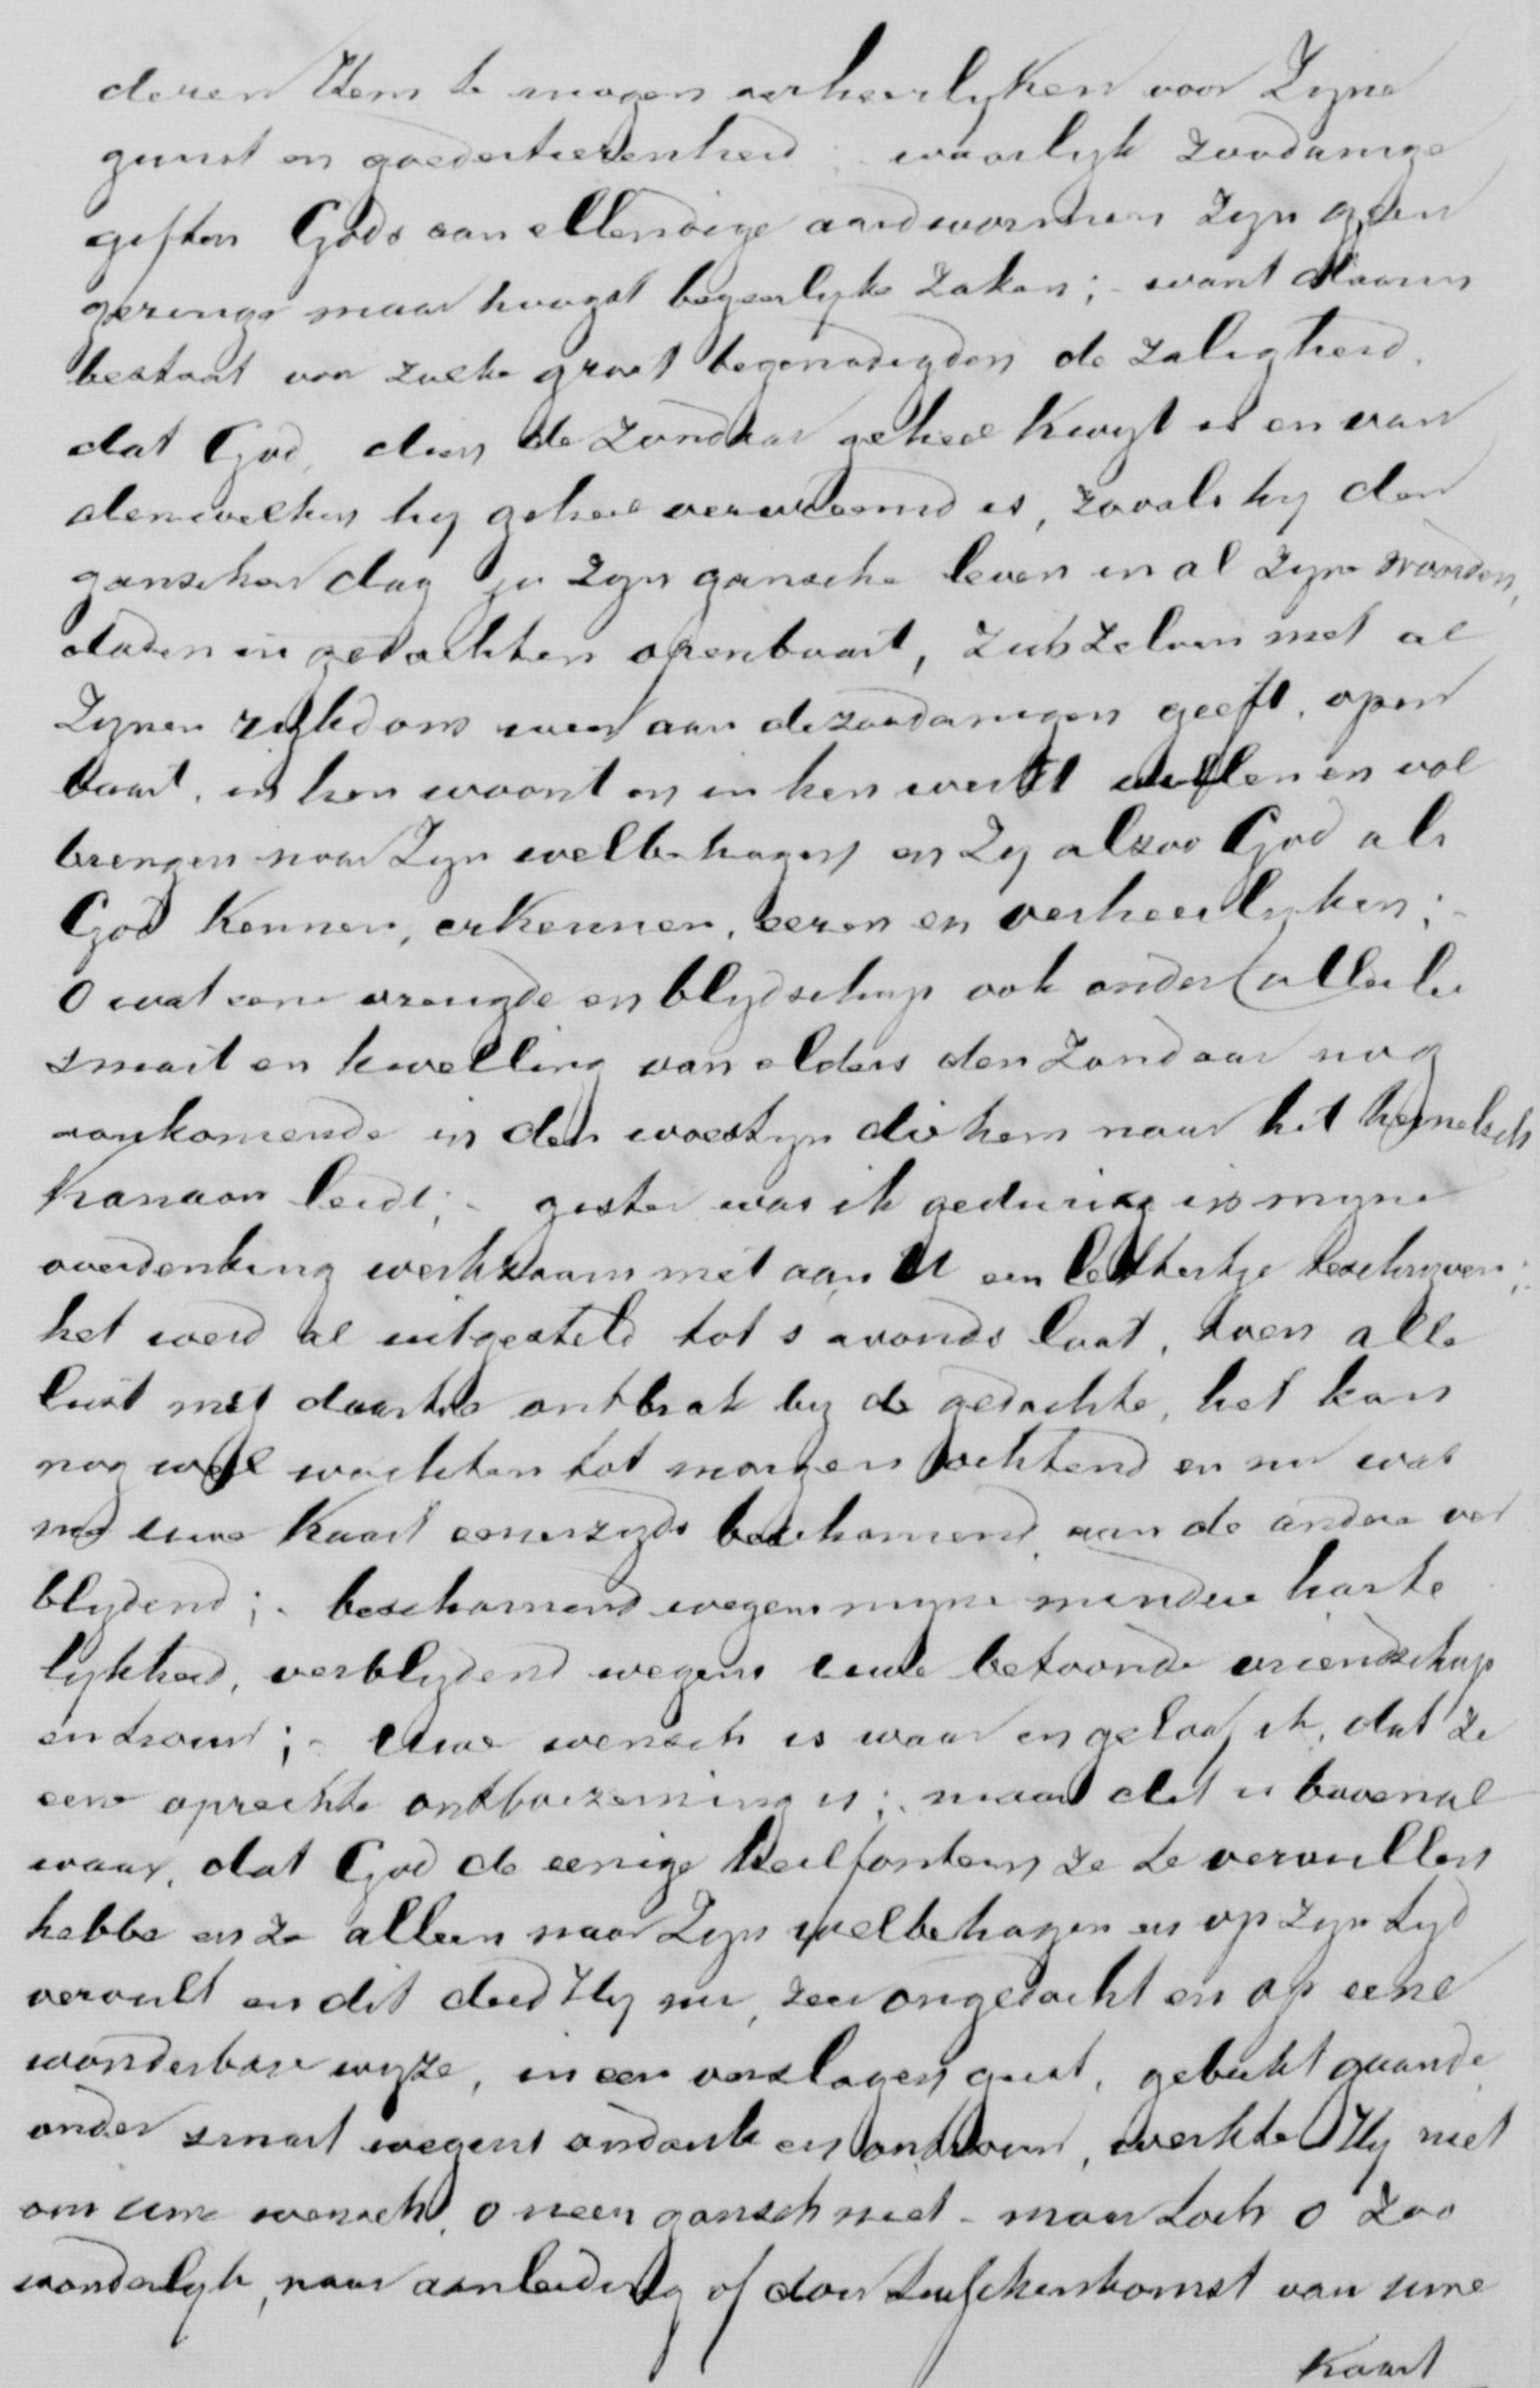 deren Hem te mogen verheerlyken voor Zyne
gunst en goedertierenheid; waarlyk zoodanige
giften Gods aan ellendige aardwormen zyn geen
geringe maar hoogst begeerlyke zaken; - want daarin
bestaat voor zulke groot begenadigden de zaligheid,
dat God, dien de zondaar geheel kwyt is en van
denwelken hy geheel vervreemd is, zooals hy den
ganschen dag ja zyn gansche leven in al zyne woorden,
daden en gedachten openbaart, zich zelven met al
Zynen rykdom weer aan dezoodanigen geeft, open
baart, in hen woont en in hen werkt willen en vol
brengen naar Zyn welbehagen en zy alzoo God als
God kennen, erkennen, eeren en verheerlyken; -
O wat eene vreugde en blydschap ook onder allerlei
smart en kwelling van elders den zondaar nog
aankomende in den woestyn die hem naar het hemelsch
Kanaan leidt; - gister was ik gedurig in myne
overdenking werkzaam met aan U een lettertje te schryven;
het werd al uitgesteld tot s avonds laat, toen alle
lust my daartoe ontbrak by de gedachte, het kan
nog wel wachten tot morgen ochtend en nu was
my uwe kaart eenerzyds beschamend aan de andere ver
blydend; - beschamend wegens myne mindere harte
lykheid, verblydend wegens uwe betoonde vriendschap
en trouw; - Uwe wensch is waar en geloof ik, dat ze
eene oprechte ontboezeming is; maar dit is bovenal
waar, dat God de eenige heilfontein ze te vervullen
hebbe en ze alleen naar Zyn welbehagen en op zyn tyd
vervult en dit deed Hy nu, zeer ongedacht en op eene
wonderbare wyze, in een verslagen geest, gebukt gaande
onder smart wegens ondank en ontrouw, werkte Hy niet
om uwe wensch, o neen gansch niet - maar toch o zoo
wonderlyk, naar aanleiding of door tusschenkomst van uwe
kaart